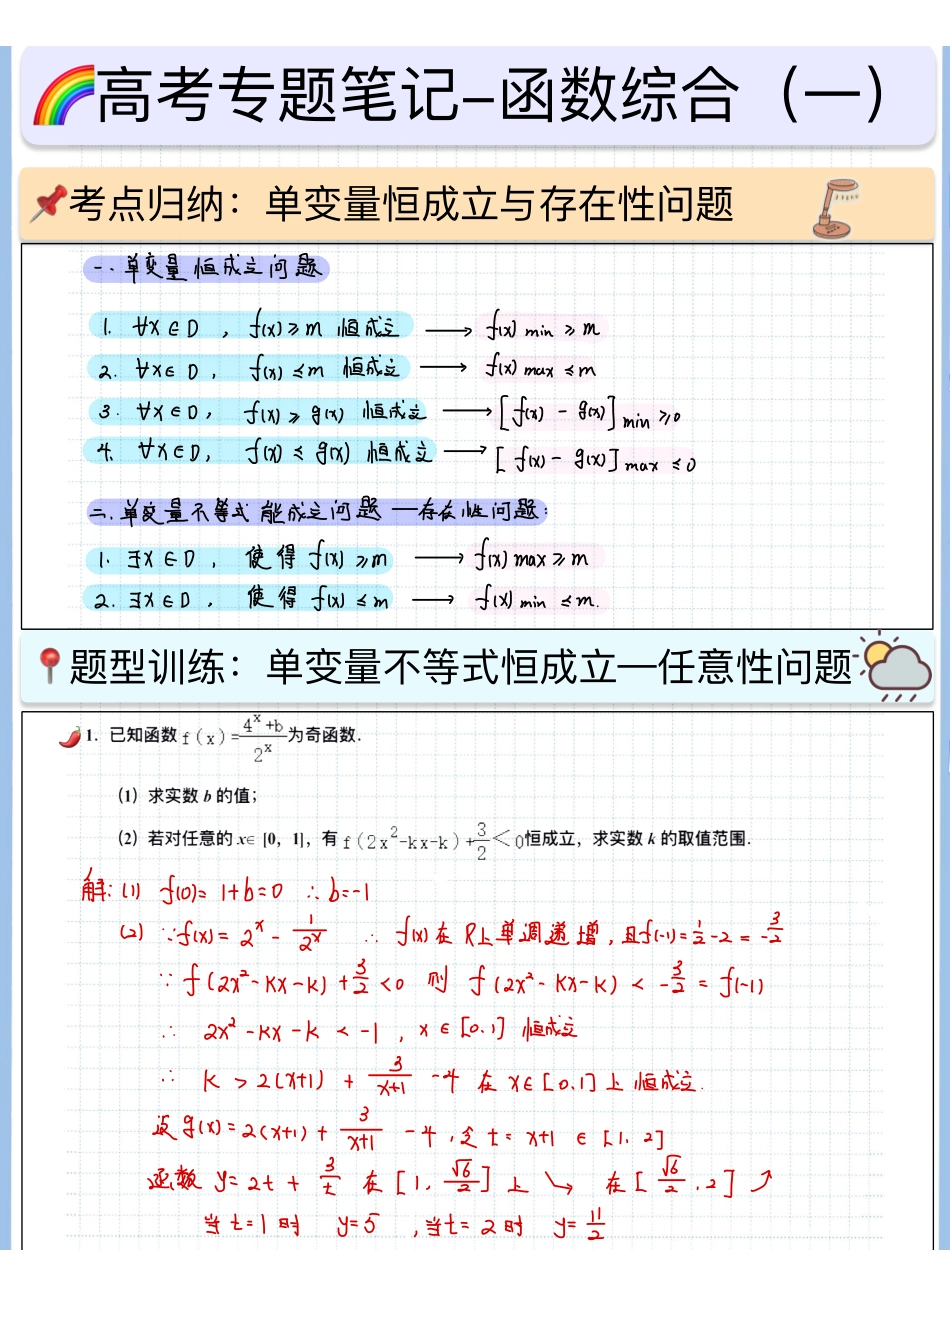 高考专题笔记–函数综合（一）
考点归纳：单变量恒成立与存在性问题
一.单变量恒成立问题
1. ∀x∈D , f(x)≥m 恒成立 → f(x)min ≥m
2. ∀x∈D , f(x)≤m 恒成立 → f(x)max ≤m
3. ∀x∈D, f(x)≥g(x) 恒成立 → [f(x) - g(x)]min ≥0
4. ∀x∈D, f(x)≤g(x) 恒成立 → [f(x) - g(x)]max ≤0
二.单变量不等式能成立问题—存在性问题:
1. ∃x∈D, 使得 f(x)≥m → f(x)max≥m
2. ∃x∈D, 使得 f(x)≤m → f(x)min ≤m.
题型训练：单变量不等式恒成立—任意性问题
1．已知函数f(x)=(4^x+b)/2^x为奇函数．
（1）求实数 b 的值；
（2）若对任意的 x∈[0，1]，有f(2x²-kx-k)+3/2<0恒成立，求实数 k 的取值范围．
解:(1) f(0)=1+b=0 ∴b=-1
(2) ∵f(x)=2^x-1/2^x ∴f(x)在R上单调递增,且f(-1)=1/2-2=-3/2
∵f(2x²-kx-k)+3/2<0 则 f(2x²-kx-k)<-3/2=f(-1)
∴ 2x²-kx-k<-1, x∈[0,1] 恒成立
∴ k>2(x+1)+3/(x+1)-4 在x∈[0,1]上恒成立.
设g(x)=2(x+1)+3/(x+1)-4,令t=x+1∈[1,2]
函数 y=2t+3/t 在[1,√6/2]上↘ 在[√6/2,2]↗
当t=1时 y=5 ,当t=2时 y=11/2